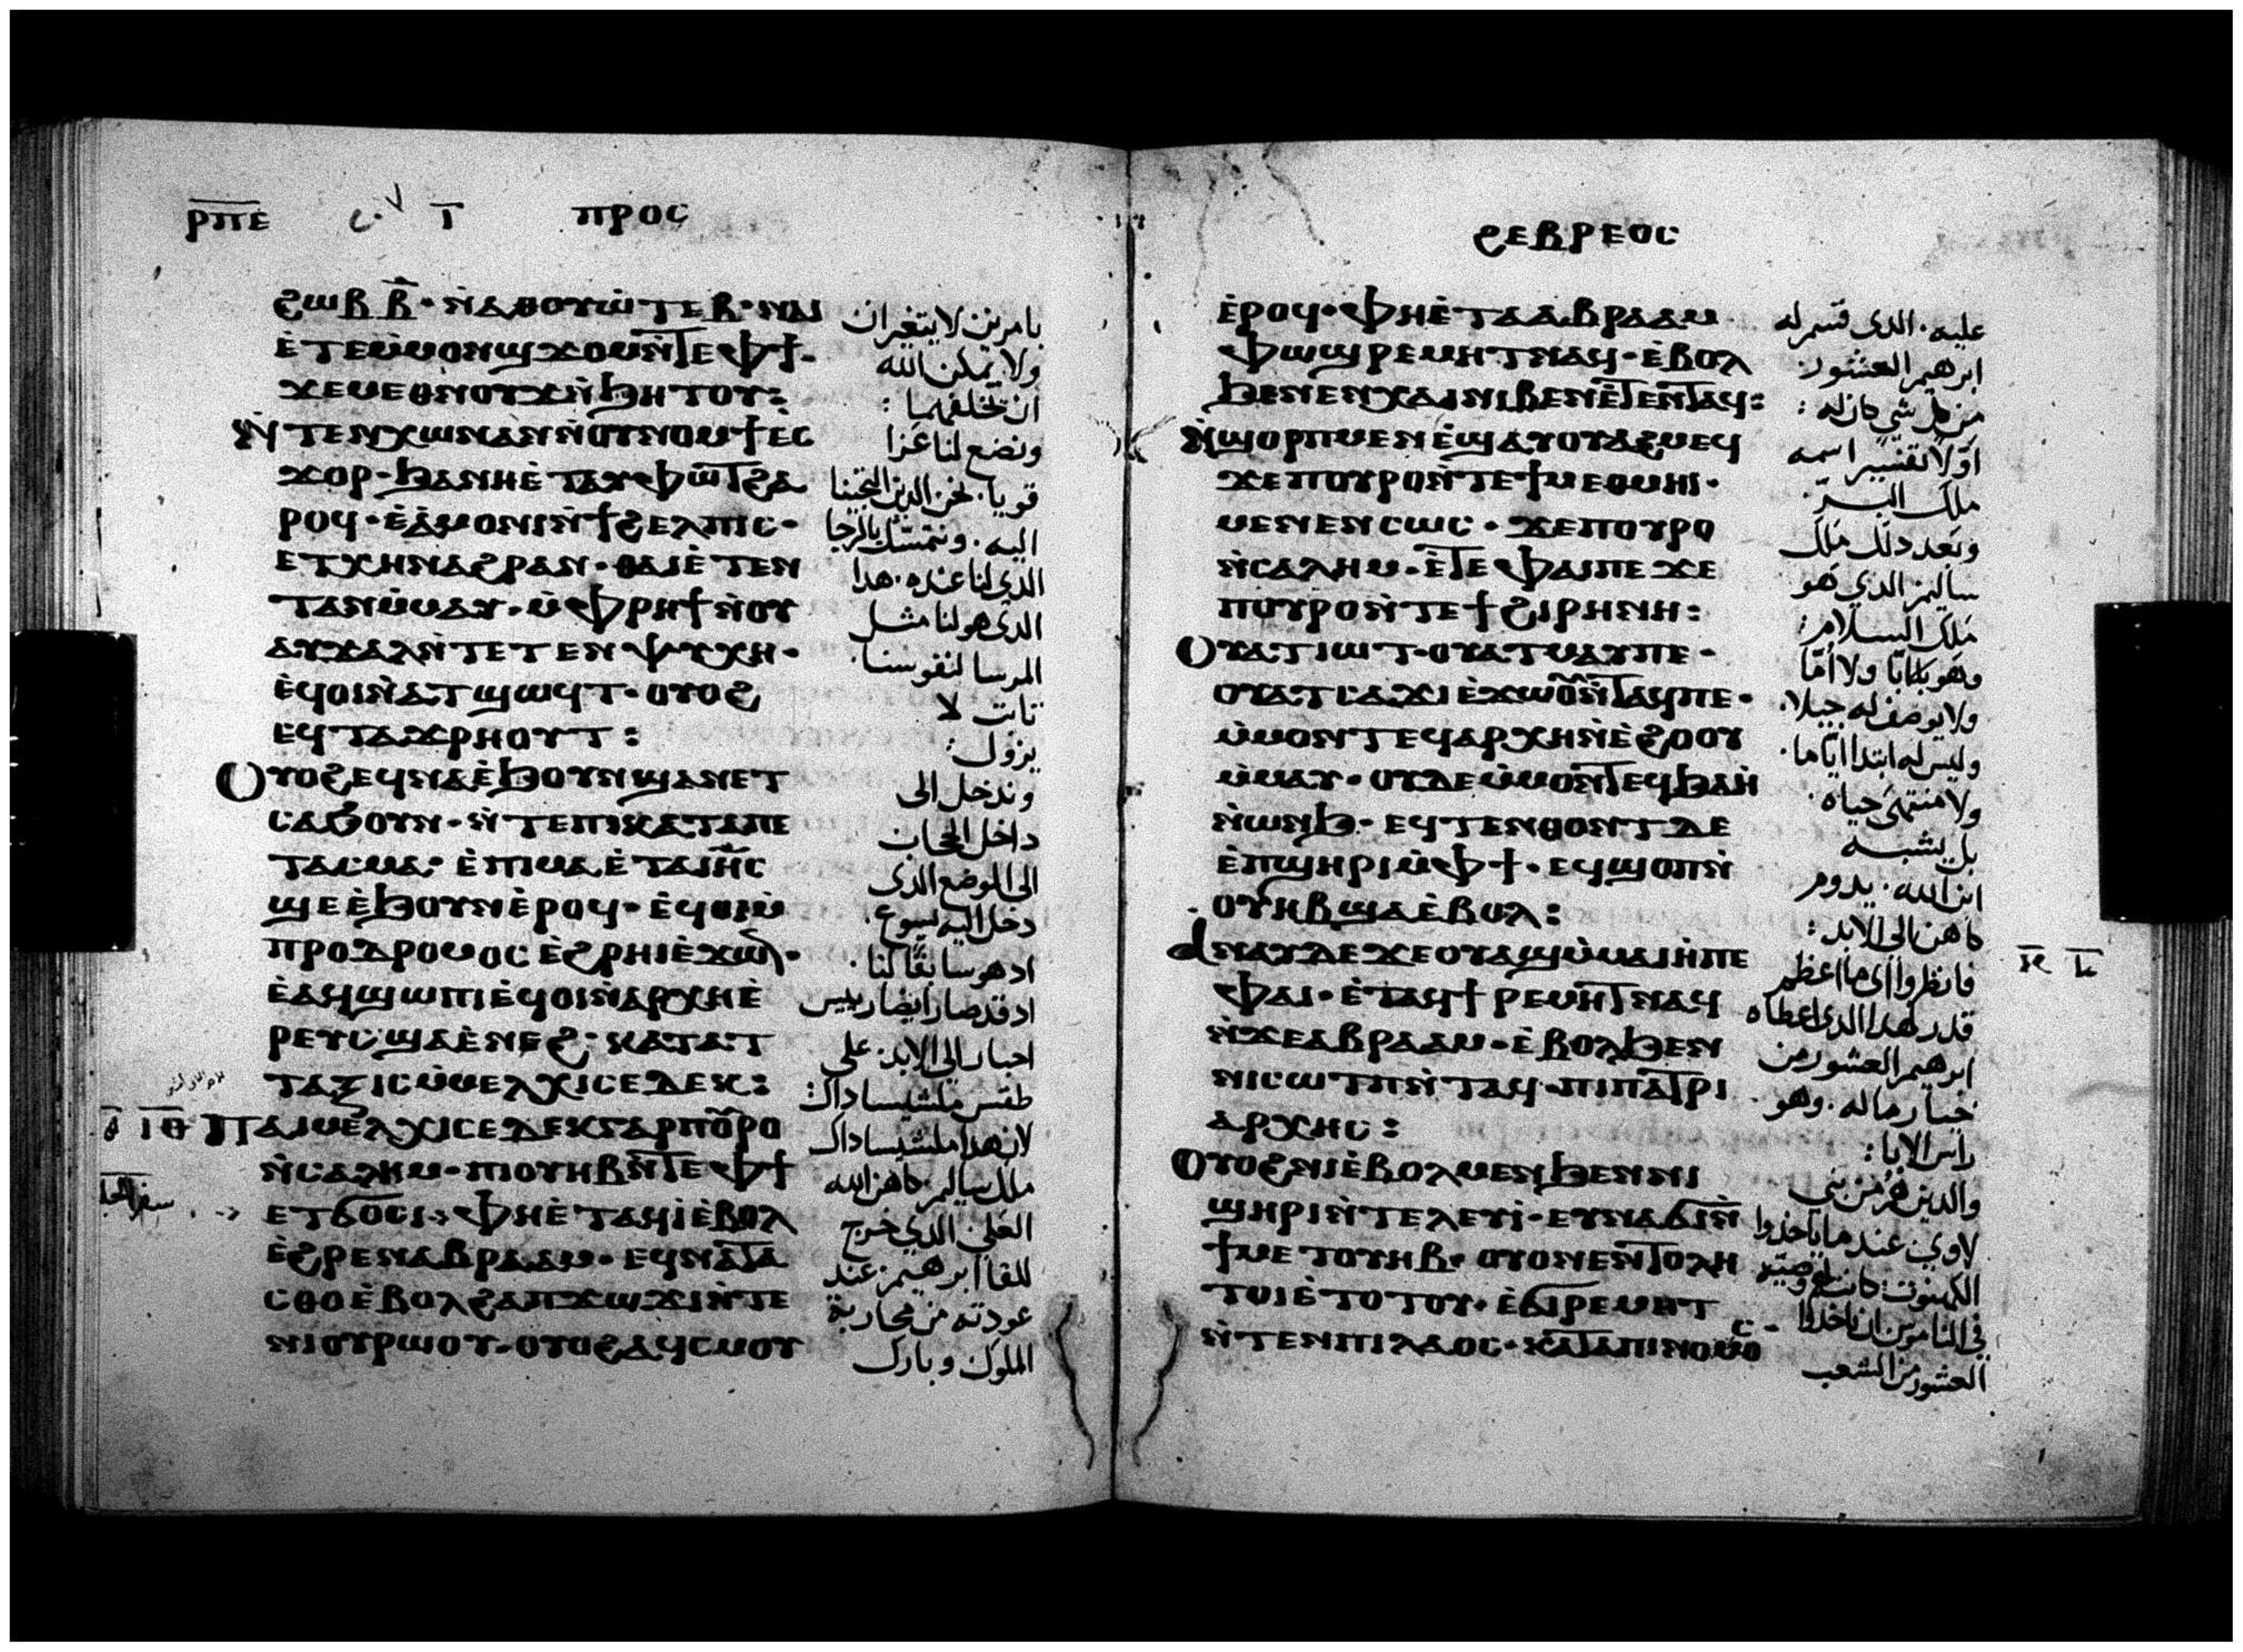 ⲣⲡⲉ ⲓ̅ ⲡⲣⲟⲥ
ϩⲱⲃ ⲃ̅· ⲛ̀ⲁⲑⲟⲩⲱ̀ⲧⲉⲃ· ⲛⲁⲓ
ⲉ̀ⲧⲉⲙ̀ⲙⲟⲛϣϫⲟⲙⲛ̀ⲧⲉⲫϯ·
ϫⲉⲙⲉⲑⲛⲟⲩϫⲛ̀ϧⲏⲧⲟⲩ:
ⲛ̀ⲧⲉⲛⲭⲱⲛⲁⲛⲛ̀ⲟⲩⲛⲟⲙϯⲉⲥ
ϫⲟⲣ· ϧⲁⲛⲏⲉ̀ⲧⲁⲩⲫⲱⲧϩⲁ
ⲣⲟϥ· ⲉ̀ⲁ̀ⲙⲟⲛⲓⲛ̀ϯϩⲉⲗⲡⲓⲥ·
ⲉⲧⲭⲏⲛⲁϩⲣⲁⲛ· ⲑⲁⲓⲉ̀ⲧⲉⲛ
ⲧⲁⲛⲙ̀ⲙⲁⲩ· ⲙ̀ⲫⲣⲏϯⲛ̀ⲟⲩ
ⲁⲩϫⲁⲗⲛ̀ⲧⲉⲧⲉⲛⲯⲩⲭⲏ·
ⲉ̀ϥⲟⲓⲛ̀ⲁⲧϣⲱϥⲧ· ⲟⲩⲟϩ
ⲉϥⲧⲁϫⲣⲏⲟⲩⲧ:
ⲟⲩⲟϩⲉϥⲛⲁⲉ̀ϧⲟⲩⲛϣⲁⲛⲉⲧ
ⲥⲁϧⲟⲩⲛ· ⲛ̀ⲧⲉⲡⲓⲕⲁⲧⲁⲡⲉ
ⲧⲁⲥⲙⲁ· ⲉ̀ⲡⲓⲙⲁⲉ̀ⲧⲁⲓⲏ̅ⲥ
ϣⲉⲉ̀ϧⲟⲩⲛⲉ̀ⲣⲟϥ· ⲉ̀ϥⲟⲓⲙ̀
ⲡⲣⲟⲇⲣⲟⲙⲟⲥⲉ̀ϩⲣⲏⲓⲉ̀ϫⲱⲛ·
ⲉ̀ⲁϥϣⲱⲡⲓⲉ̀ϥⲟⲓⲛ̀ⲁⲣⲭⲏⲉ̀
ⲣⲉⲩⲥϣⲁⲉ̀ⲛⲉϩ: ⲕⲁⲧⲁⲧ
ⲧⲁⲝⲓⲥⲙ̀ⲙⲉⲗⲭⲓⲥⲉⲇⲉⲕ:
ⲓ̅ⲑ̅ ⲡⲁⲓⲙⲉⲗⲭⲓⲥⲉⲇⲉⲕⲅⲁⲣⲡⲟⲩⲣⲟ
ⲛ̀ⲥⲁⲗⲏⲙ· ⲡⲓⲟⲩⲏⲃⲛ̀ⲧⲉⲫϯ
ⲉⲧϭⲟⲥⲓ· ⲫⲏⲉ̀ⲧⲁϥⲓ̀ⲉ̀ⲃⲟⲗ
ⲉ̀ϩⲣⲉⲛⲁⲃⲣⲁⲁⲙ· ⲉϥⲛⲁⲧⲁ
ⲥⲑⲟⲉ̀ⲃⲟⲗϩⲁⲡϫⲱϫⲓⲛ̀ⲧⲉ
ⲛⲓⲟⲩⲣⲱⲟⲩ· ⲟⲩⲟϩⲁϥⲥⲙⲟⲩ
بامرين لا يتغيران
ولا يمكن الله
ان يخلفهما:
ونضع لنا عزا
قويا. نحن الدين التجينا
اليه. ونتمسك بالرجا
الدى لنا عنده. هدا
الدى هو لنا مثل
المرسا لنفوسنا.
تابت لا
يزول:
وندخل الى
داخل الحجاب
الى الموضع الدى
دخل اليه يسوع.
ادهو سابقًا لنا.
اد قد صار ايضا ريس
احبار الى الابد. على
طقس ملشيساداك:
لان هدا ملشيساداك
ملك ساليم. كاهن الله
العلى الدي خرج
للقا ابرهيم. عند
عودته من محاربة
الملوك وبارك
ϩⲉⲃⲣⲉⲟⲥ
ⲉ̀ⲣⲟϥ· ⲫⲏⲉ̀ⲧⲁⲁⲃⲣⲁⲁⲙ
ⲫⲱϣⲣⲉⲙⲏⲧⲛⲁϥ· ⲉ̀ⲃⲟⲗ
ϧⲉⲛⲉⲛⲭⲁⲓⲛⲓⲃⲉⲛⲉ̀ⲧⲉⲛⲧⲁϥ:
ⲛ̀ϣⲟⲣⲡⲙⲉⲛⲉ̀ϣⲁⲩⲟⲩⲁϩⲙⲉϥ
ϫⲉⲡⲟⲩⲣⲟⲛ̀ⲧⲉϯⲙⲉⲑⲙⲏⲓ·
ⲙⲉⲛⲉⲛⲥⲱⲥ· ϫⲉⲡⲟⲩⲣⲟ
ⲛ̀ⲥⲁⲗⲏⲙ· ⲉ̀ⲧⲉⲫⲁⲓⲡⲉϫⲉ
ⲡⲟⲩⲣⲟⲛ̀ⲧⲉϯϩⲓⲣⲏⲛⲏ:
ⲟⲩⲁⲧⲓⲱⲧ· ⲟⲩⲁⲧⲙⲁⲩⲡⲉ·
ⲟⲩⲁⲧⲥⲁϫⲓⲉ̀ϫⲱⲟⲩⲛ̀ⲧⲁϥⲡⲉ·
ⲙ̀ⲙⲟⲛⲧⲉϥⲁⲣⲭⲏⲛ̀ⲉ̀ϩⲟⲟⲩ
ⲙ̀ⲙⲁⲩ· ⲟⲩⲇⲉⲙ̀ⲙⲟⲛⲧⲉϥϧⲁⲏ̀
ⲛ̀ⲱⲛϧ· ⲉϥⲧⲉⲛⲑⲟⲛⲧⲇⲉ
ⲉ̀ⲡϣⲏⲣⲓⲙ̀ⲫϯ· ⲉϥϣⲟⲡⲛ̀
ⲟⲩⲏⲃϣⲁⲉ̀ⲃⲟⲗ:
ⲁⲛⲁⲩⲇⲉϫⲉⲟⲩⲁϣⲙ̀ⲙⲁⲓⲏ̀ⲡⲉ
ⲫⲁⲓ· ⲉ̀ⲧⲁϥϯⲣⲉⲙⲏⲧⲛⲁϥ
ⲛ̀ϫⲉⲁⲃⲣⲁⲁⲙ· ⲉ̀ⲃⲟⲗϧⲉⲛ
ⲛⲓⲥⲱⲧⲡⲛ̀ⲧⲁϥ· ⲡⲓⲡⲁⲧⲣⲓ
ⲁⲣⲭⲏⲥ:
ⲟⲩⲟϩⲛⲓⲉ̀ⲃⲟⲗⲙⲉⲛϧⲉⲛⲛⲓ
ϣⲏⲣⲓⲛ̀ⲧⲉⲗⲉⲩⲓ̀· ⲉⲩⲛⲁϭⲓⲛ̀
ϯⲙⲉⲧⲟⲩⲏⲃ· ⲟⲩⲟⲛⲉⲛⲧⲟⲗⲏ
ⲧⲟⲓⲉ̀ⲧⲟⲧⲟⲩ· ⲉ̀ϭⲓⲣⲉⲙⲏⲧ
ⲛ̀ⲧⲉⲛⲡⲓⲗⲁⲟⲥ· ⲕⲁⲧⲁⲡⲓⲛⲟⲙⲟ
عليه. الدى قسم له
ابرهيم العشور.
من كل شي كان له:
اوّلا تفسير اسمه
ملك البر.
وبعد دلك ملك
ساليم الدي هو
ملك السلام:
وهو بلا ابًا ولا امّا
ولا يوصف له جيلا.
وليس له ابتدا ايّاما.
ولا منتهى حياه.
بل يشبه
ابن الله. يدوم
كاهن الى الابد:
فانظروا اى ما اعظم
قدر هدا الدى اعطاه
ابرهيم العشور من
خيار ماله. وهو
راس الابا:
والدين هم من بني
لاوي. عند ما ياخدوا
الكهنوت كانت وصية
في الناموس ان ياخدوا
العشور من الشعب